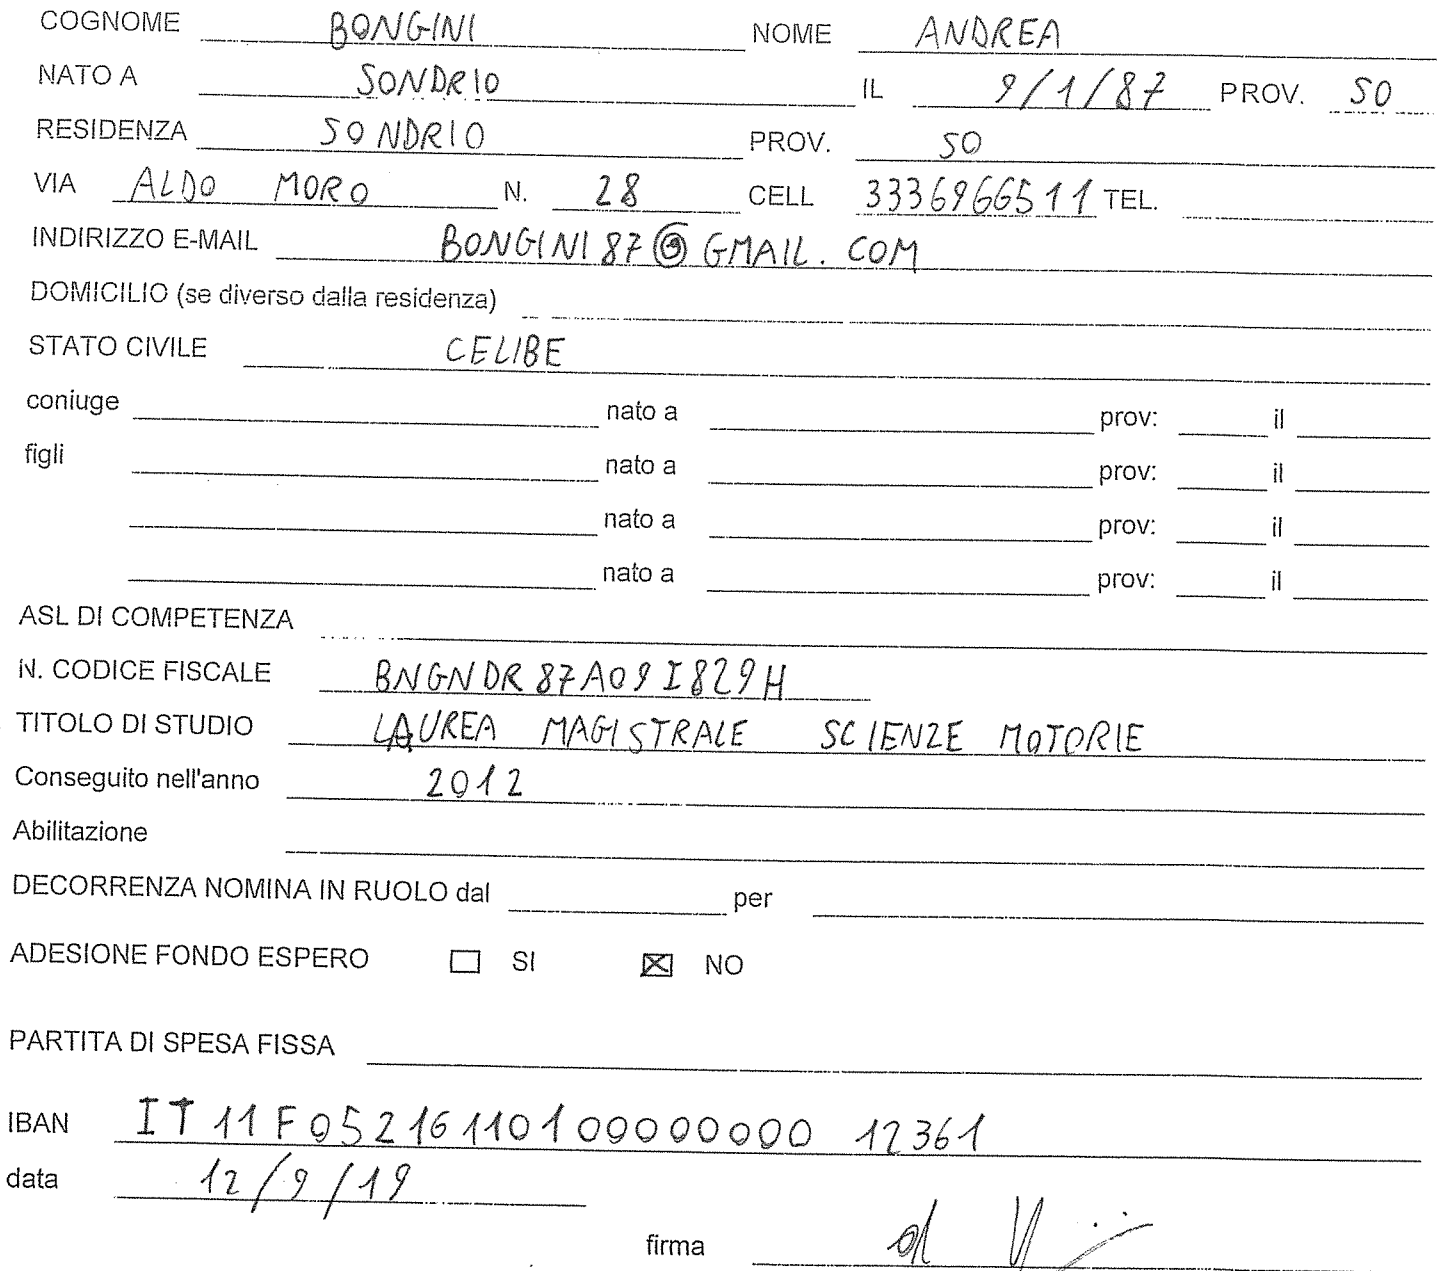 COGNOME BONGINI NOME ANDREA
NATO A SONDRIO IL 9/1/87 PROV. SO
RESIDENZA SONDRIO PROV. SO
VIA ALDO MORO N. 28 CELL 3336966511 TEL.
INDIRIZZO E-MAIL BONGINI87@GMAIL.COM
DOMICILIO (se diverso dalla residenza)
STATO CIVILE CELIBE
coniuge nato a prov: il
figli nato a prov: il
nato a prov: il
nato a prov: il
ASL DI COMPETENZA
N. CODICE FISCALE BNGNDR87A09I829H
TITOLO DI STUDIO LAUREA MAGISTRALE SCIENZE MOTORIE
Conseguito nell'anno 2012
Abilitazione
DECORRENZA NOMINA IN RUOLO dal per
ADESIONE FONDO ESPERO ☐ SI ☒ NO
PARTITA DI SPESA FISSA
IBAN IT 11 F 05216 11010 0000000 12361
data 12/9/19
firma